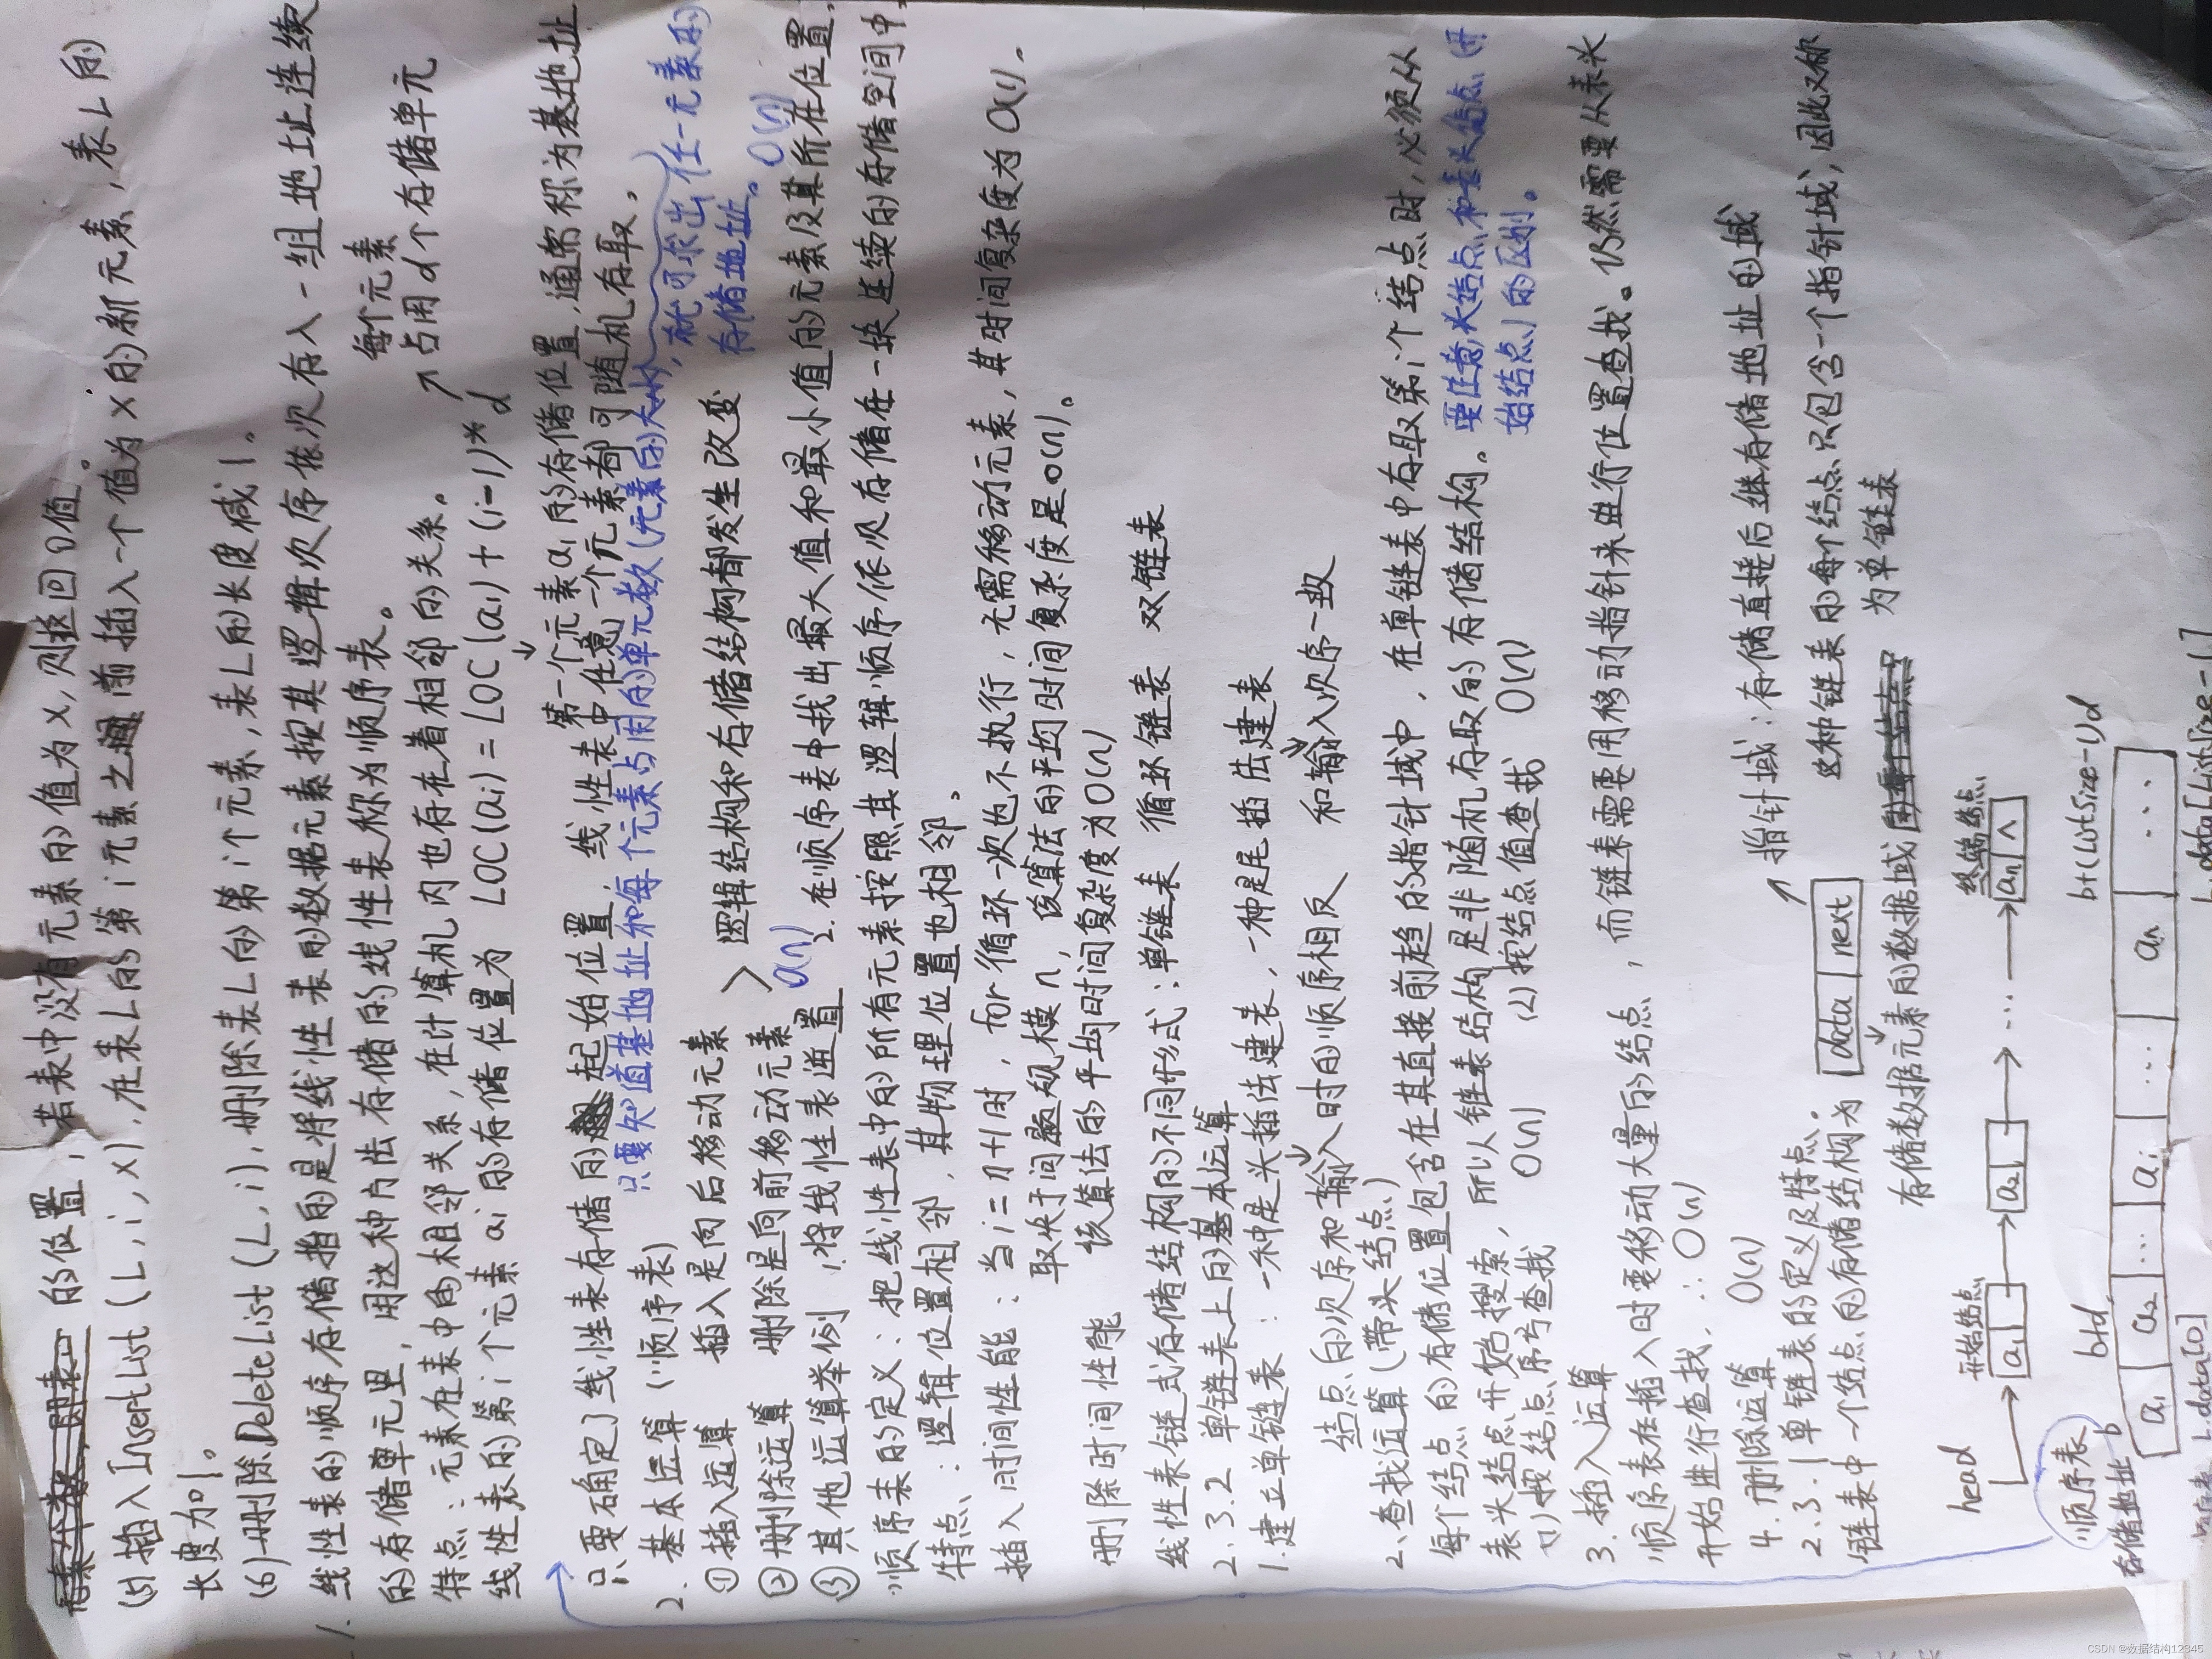 的位置；若表中没有元素的值为x，则返回0值。
(5) 插入InsertList(L,i,x)，在表L的第i元素之前插入一个值为x的新元素，表L的
长度加1。
(6) 删除DeleteList(L,i)，删除表L的第i个元素，表L的长度减1。
1. 线性表的顺序存储指的是将线性表的数据元素按其逻辑次序依次存入一组地址连续
的存储单元里，用这种方法存储的线性表称为顺序表。
每个元素
占用d个存储单元
特点：元素在表中的相邻关系，在计算机内也存在着相邻的关系。
线性表的第i个元素ai的存储位置为 LOC(ai)=LOC(a1)+(i-1)*d
第一个元素a1的存储位置，通常称为基地址
只要确定了线性表存储的起始位置，线性表中任意一个元素都可随机存取。
只要知道基地址和每个元素占用的单元数(元素的大小)，就可求出任一元素的
存储地址。O(n)
2. 基本运算(顺序表)
① 插入运算 插入是向后移动元素
② 删除运算 删除是向前移动元素
> 逻辑结构和存储结构都发生改变
O(n)
③ 其他运算举例 1.将线性表逆置 2.在顺序表中找出最大值和最小值的元素及其所在位置，
顺序表的定义：把线性表中的所有元素按照其逻辑顺序依次存储在一块连续的存储空间中
特点：逻辑位置相邻，其物理位置也相邻。
插入时间性能：当i=n+1时，for循环一次也不执行，无需移动元素，其时间复杂度为O(1)。
取决于问题规模n，该算法的平均时间复杂度是O(n)。
删除时间性能 该算法的平均时间复杂度为O(n)
线性表链式存储结构的不同形式：单链表 循环链表 双链表
2.3.2 单链表上的基本运算
1.建立单链表：一种是头插法建表，一种是尾插法建表
结点的次序和输入时的顺序相反 和输入次序一致
2、查找运算(带头结点)
每个结点的存储位置包含在其直接前趋的指针域中，在单链表中存取第i个结点时，必须从
表头结点开始搜索，所以链表结构是非随机存取的存储结构。
要注意，头结点和表头结点(开
始结点)的区别。
(1) 按结点序号查找 O(n) (2) 按结点值查找 O(n)
3. 插入运算
顺序表在插入时要移动大量的结点，而链表需要用移动指针来进行位置查找。仍然需要从表头
开始进行查找，∴O(n)
4. 删除运算 O(n)
2.3.1 单链表的定义及特点。
指针域：存储直接后继存储地址的域
链表中一个结点的存储结构为 data next
这种链表的每个结点只包含一个指针域，因此又称
为单链表
存储数据元素的数据域
head 开始结点 终端结点
a1 a2 … an ∧
顺序表
存储地址 b b+d b+(ListSize-1)d
a1 a2 … ai … an …
L.data[0] L.data[ListSize-1]
CSDN @数据结构12345